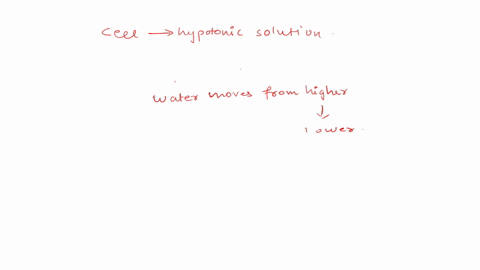 cell → hypotonic solution.
water moves from higher
↓
lower.